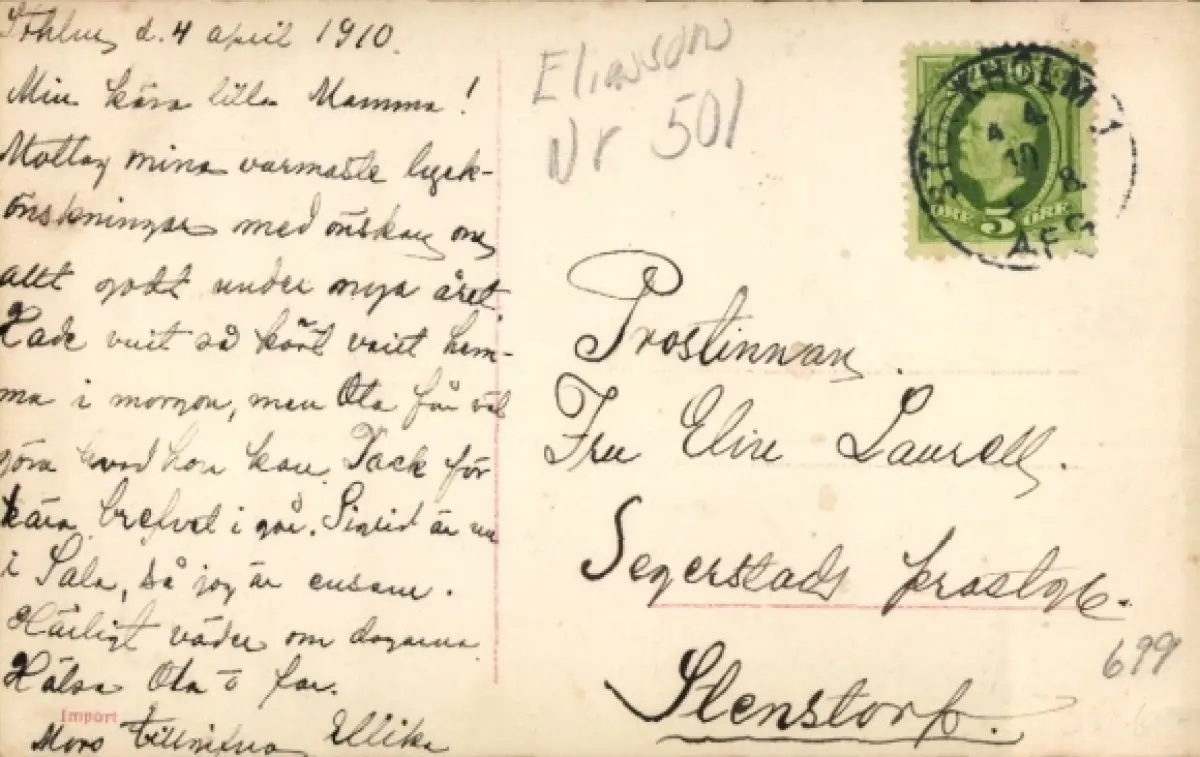 Sthlm d. 4 april 1910.
Min kära lilla Mamma!
Mottag mina varmaste lyck-
önskningar med önskan om
allt godt under nya året.
Hade vait så kärt vait hem-
ma i morgon, men Ota får väl
göra hvad hon kan. Tack för
kära brefvet i går. Sigrid är nu
i Sala, så jag är ensam.
Härligt väder om dagarna.
Hälsa Ota o far.
Mors tillgifna Ellika
Import
Eliasson
Nr 501
STOCKHOLM 1
4 4
10
8
AFG
ÖRE 5 ÖRE
Prostinnan
Fru Elise Laurell.
Segerstads prostg.
Stenstorp.
699